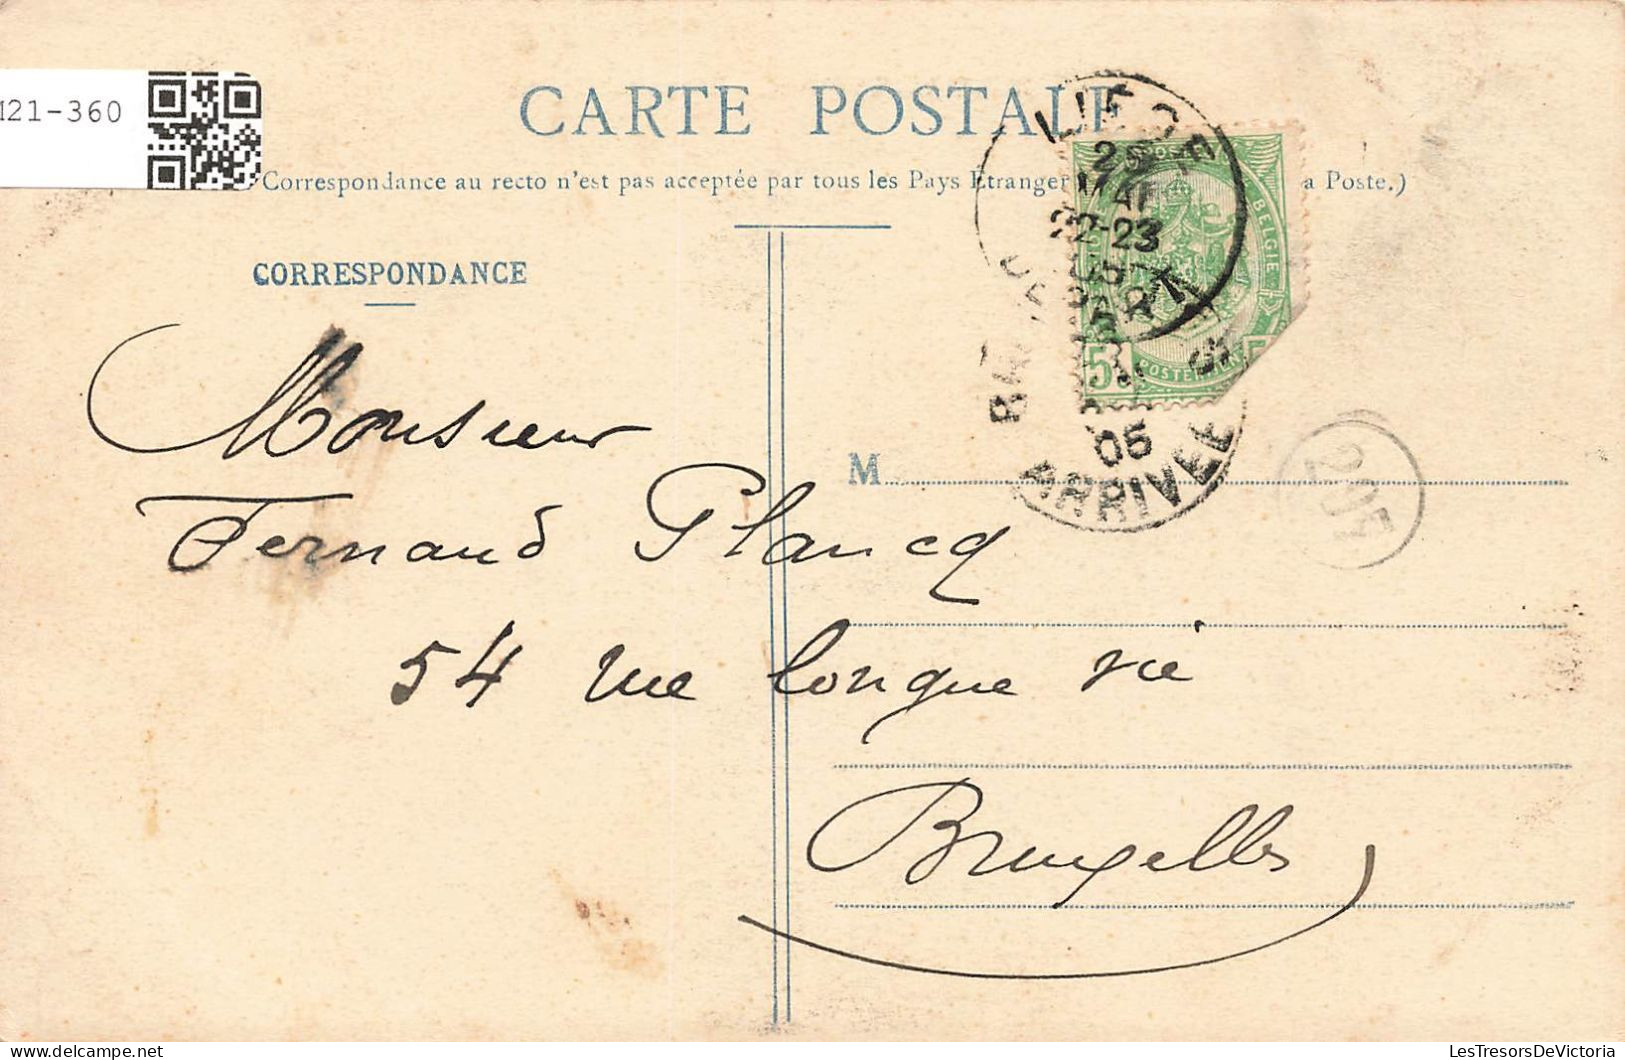 M21-360
CARTE POSTALE
(Correspondance au recto n'est pas acceptée par tous les Pays Etranger a Poste.)
CORRESPONDANCE
LIEGE
22-23
DEPART
BELGIE
5
05
ARRIVEE
M
205
Monsieur
Fernand Plancq
54 rue longue vie
Bruxelles
LesTresorsDeVictoria